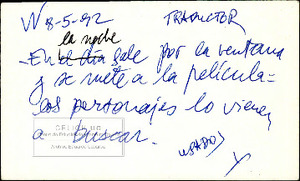 V 8-5-92 TRADUCTOR
la noche
En el día sale por la ventana
y se mete a la película =
los personajes lo vienen
a buscar.
USADO